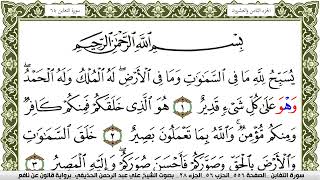 الجزء الثامن والعشرون
سورة التغابن ٦٤
بِسْمِ اللَّهِ الرَّحْمَٰنِ الرَّحِيمِ
يُسَبِّحُ لِلَّهِ مَا فِي السَّمَٰوَٰتِ وَمَا فِي الْأَرْضِ لَهُ الْمُلْكُ وَلَهُ الْحَمْدُ
وَهُوَ عَلَىٰ كُلِّ شَيْءٍ قَدِيرٌ ١ هُوَ الَّذِي خَلَقَكُمْ فَمِنكُمْ كَافِرٌ
وَمِنكُم مُّؤْمِنٌ وَاللَّهُ بِمَا تَعْمَلُونَ بَصِيرٌ ٢ خَلَقَ السَّمَٰوَٰتِ
وَالْأَرْضَ بِالْحَقِّ وَصَوَّرَكُمْ فَأَحْسَنَ صُوَرَكُمْ وَإِلَيْهِ الْمَصِيرُ ٣
سورة التغابن - الصفحة ٥٥٦ - الحزب ٥٦ - الجزء ٢٨ - بصوت الشيخ علي عبد الرحمن الحذيفي - برواية قالون عن نافع